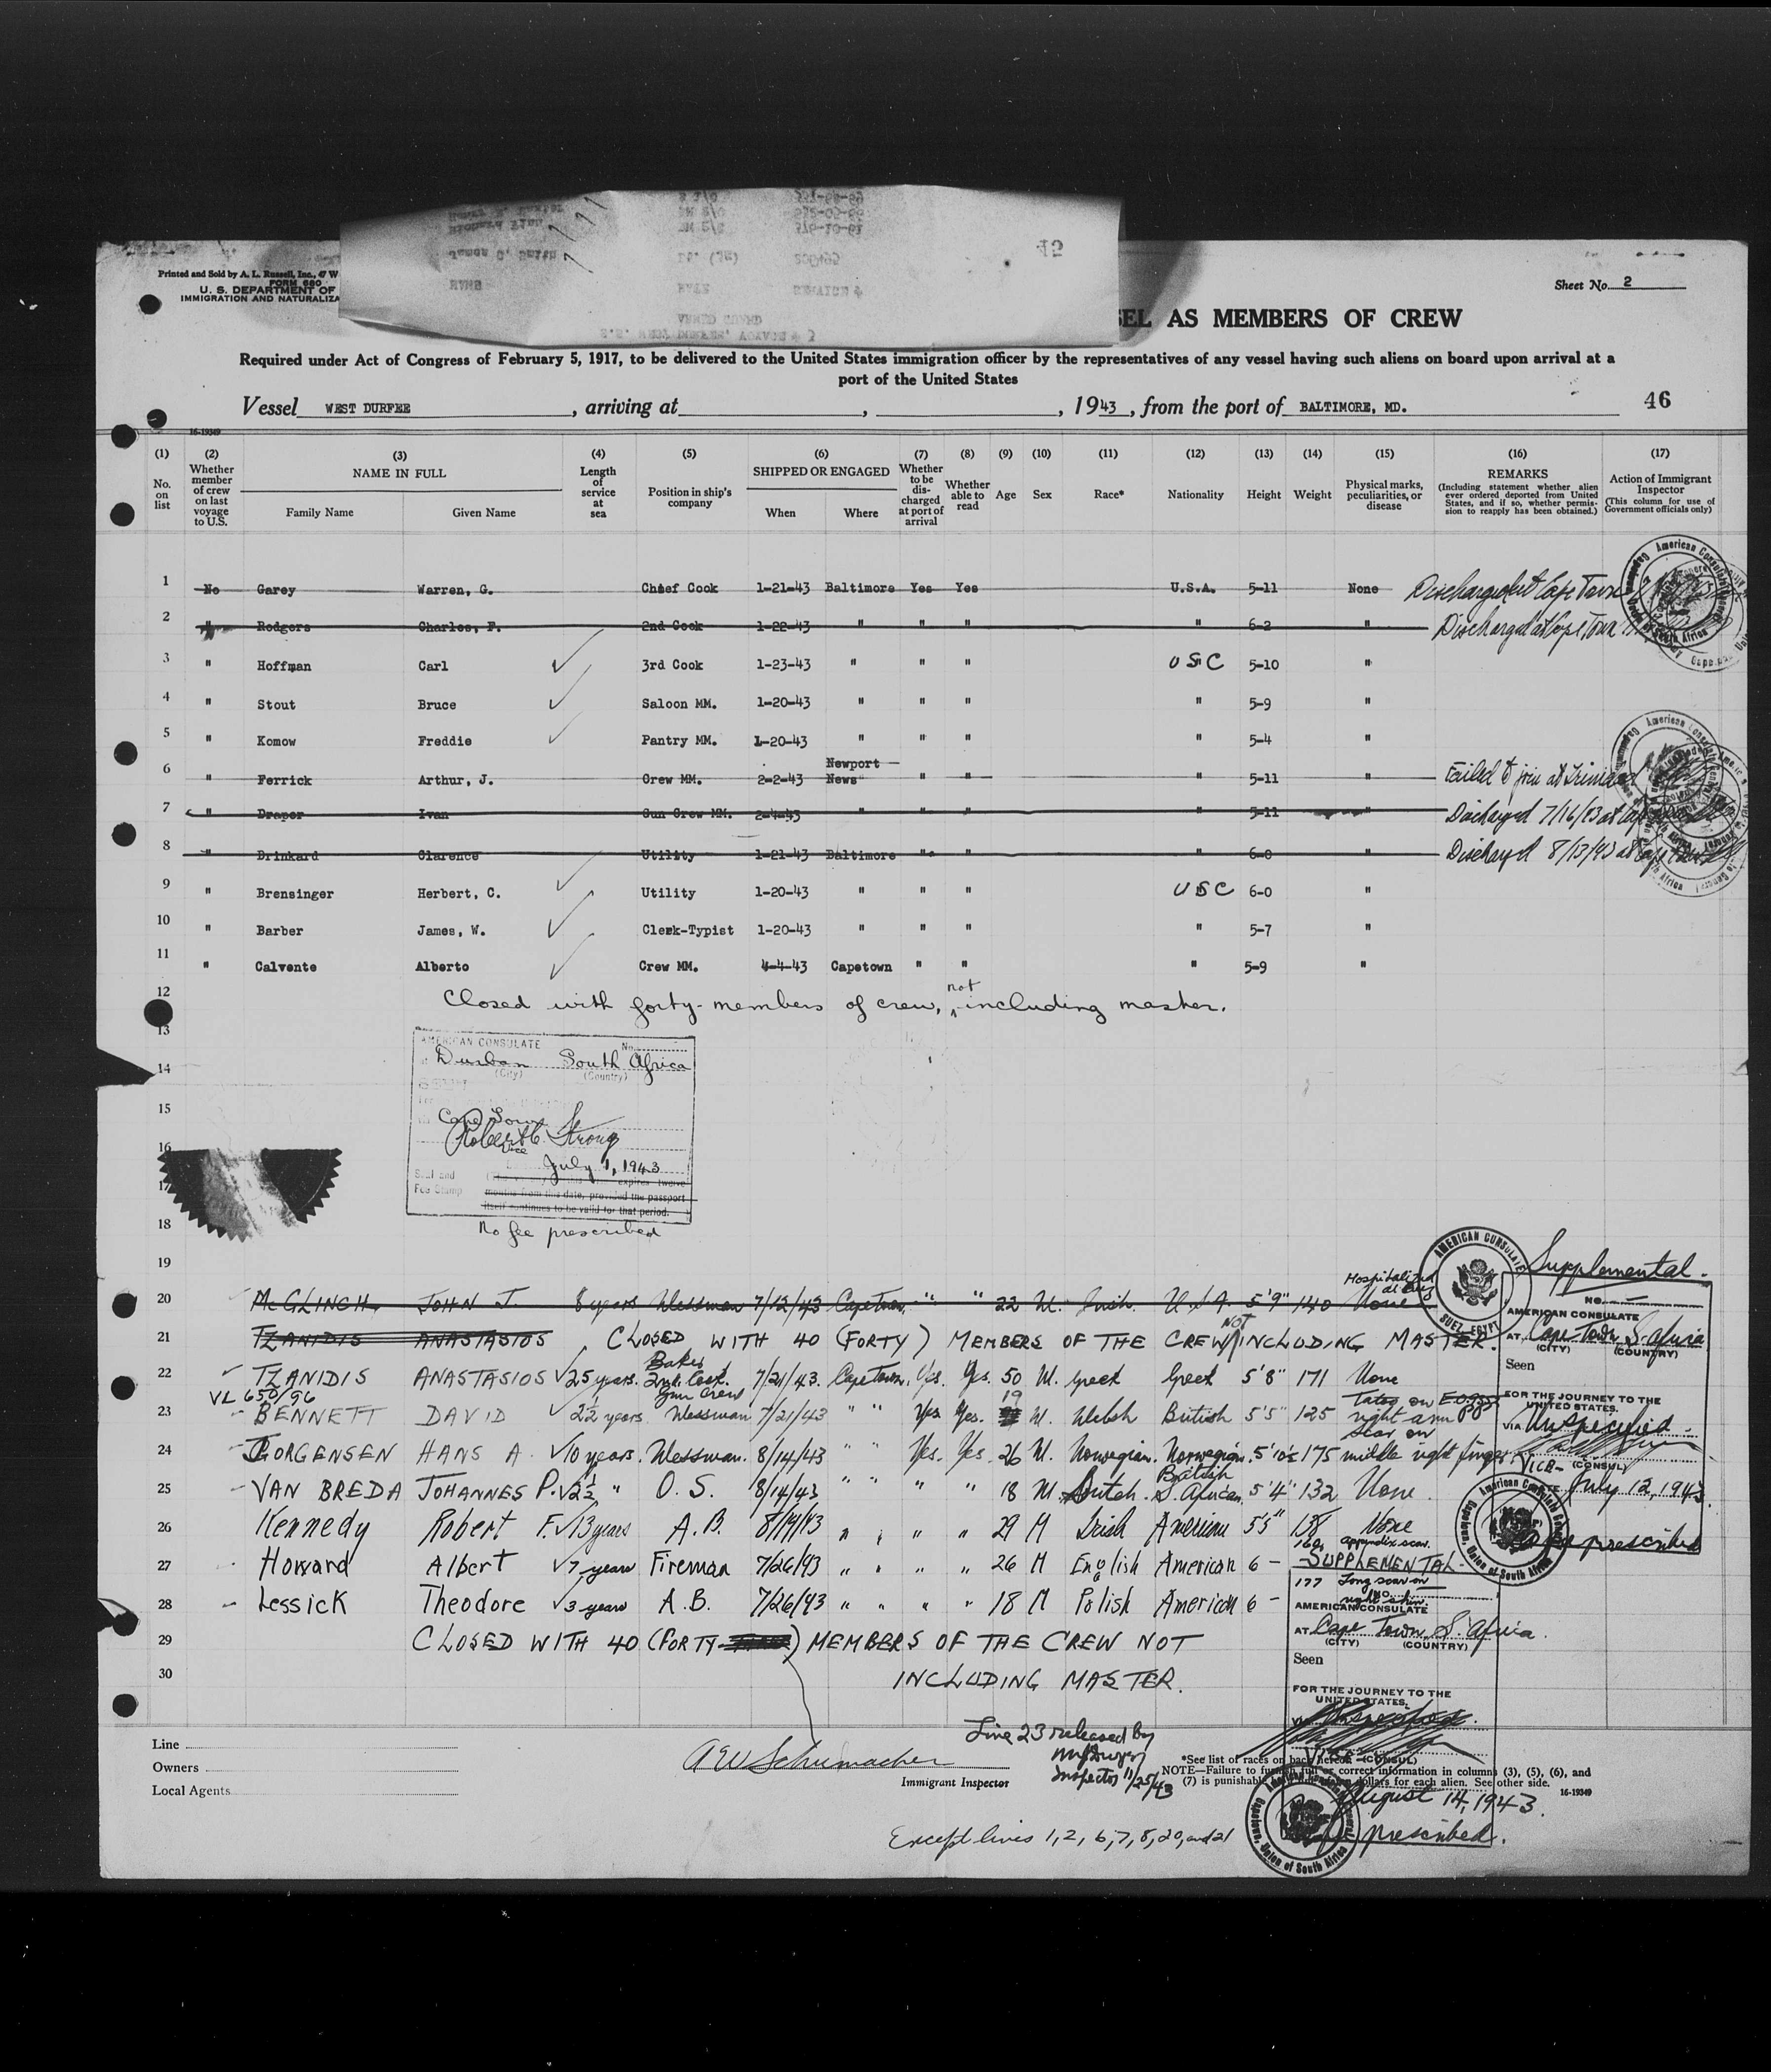 Printed and Sold by A. L. Russell, Inc., 47 W
FORM 680
U. S. DEPARTMENT OF
IMMIGRATION AND NATURALIZA
45
Sheet No. 2
SEL AS MEMBERS OF CREW
Required under Act of Congress of February 5, 1917, to be delivered to the United States immigration officer by the representatives of any vessel having such aliens on board upon arrival at a
port of the United States
Vessel WEST DURFEE, arriving at , , 1943, from the port of BALTIMORE, MD. 46
16-19349
(1) (2) (3) (4) (5) (6) (7) (8) (9) (10) (11) (12) (13) (14) (15) (16) (17)
No. on list
Whether member of crew on last voyage to U.S.
NAME IN FULL
Family Name Given Name
Length of service at sea
Position in ship's company
SHIPPED OR ENGAGED
When Where
Whether to be discharged at port of arrival
Whether able to read
Age Sex Race* Nationality Height Weight
Physical marks, peculiarities, or disease
REMARKS
(Including statement whether alien ever ordered deported from United States, and if so, whether permission to reapply has been obtained.)
Action of Immigrant Inspector
(This column for use of Government officials only)
1 No Garey Warren, G. Chief Cook 1-21-43 Baltimore Yes Yes U.S.A. 5-11 None Discharged at Cape Town
2 " Rodgers Charles, F. 2nd Cook 1-22-43 " " " " 6-2 " Discharged at Cape Town
3 " Hoffman Carl 3rd Cook 1-23-43 " " " USC 5-10 "
4 " Stout Bruce Saloon MM. 1-20-43 " " " " 5-9 "
5 " Komow Freddie Pantry MM. 1-20-43 " " " " 5-4 "
6 " Ferrick Arthur, J. Crew MM. 2-2-43 Newport News " " " 5-11 " Failed to join at Trinidad
7 " Draper Ivan Gun Crew MM. 2-4-43 " " " " 5-11 " Discharged 7/16/43 at
8 " Drinkard Clarence Utility 1-21-43 Baltimore " " " 6-0 " Discharged 8/13/43 at Cape Town
9 " Brensinger Herbert, C. Utility 1-20-43 " " " USC 6-0 "
10 " Barber James, W. Clerk-Typist 1-20-43 " " " " 5-7 "
11 " Calvente Alberto Crew MM. 4-4-43 Capetown " " " 5-9 "
12 Closed with forty members of crew, not including master.
13
AMERICAN CONSULATE No.
Durban South Africa
(City) (Country)
14
15
Cape Town
Robert C. Strong
Vice
16
July 1, 1943
17
Seal and
Fee Stamp
expires twelve
months from this date, provided the passport
itself continues to be valid for that period.
18
No fee prescribed
19
Supplemental.
AMERICAN CONSULATE
SUEZ, EGYPT
20 McGLINCH JOHN J. 8 years Messman 7/12/43 Cape Town " " 22 M. Irish. U.S.A. 5'9" 140 None Hospitalized at Suez
21 TZANIDIS ANASTASIOS CLOSED WITH 40 (FORTY) MEMBERS OF THE CREW NOT INCLUDING MASTER.
22 TZANIDIS ANASTASIOS 25 years. Baker 2nd Cook. 7/21/43. Cape Town. Yes. Yes. 50 M. Greek Greek 5'8" 171 None
VL 650/96
23 BENNETT DAVID 22 years Gun Crew Messman 7/21/43 " " Yes Yes. 19 M. Welsh British 5'5" 125 Tatoo on right arm
24 JORGENSEN HANS A. 10 years. Messman. 8/14/43 " " Yes. Yes. 26 M. Norwegian. Norwegian. 5'10½ 175 Scar on middle right finger
25 VAN BREDA JOHANNES P. 2½ " O. S. 8/14/43 " " " " 18 M Dutch. British S. African. 5'4" 132 None.
26 Kennedy Robert F. 13 years A.B. 8/14/43 " " " " 29 M Irish American 5'5" 138 None
27 Howard Albert 7 years Fireman 7/26/43 " " " " 26 M English American 6 - 160 appendix scar.
28 Lessick Theodore 3 years A.B. 7/26/43 " " " " 18 M Polish American 6 - 177 Long scar on right shin.
29 CLOSED WITH 40 (FORTY) MEMBERS OF THE CREW NOT
30 INCLUDING MASTER.
No.
AMERICAN CONSULATE
AT Cape Town, S. Africa
(CITY) (COUNTRY)
Seen
FOR THE JOURNEY TO THE
UNITED STATES.
VIA Unspecified
VICE- (CONSUL)
July 12, 1943.
prescribed
SUPPLEMENTAL
NO.
AMERICAN CONSULATE
AT Cape Town, S. Africa.
(CITY) (COUNTRY)
Seen
FOR THE JOURNEY TO THE
UNITED STATES.
Vice (CONSUL)
August 14, 1943.
prescribed.
American Consulate General
Capetown, Union of South Africa
Line
Owners
Local Agents
A W Schumacher
Immigrant Inspector
Line 23 released by
Inspector 11/25/43
*See list of races on back hereof
NOTE—Failure to furnish full or correct information in columns (3), (5), (6), and
(7) is punishable dollars for each alien. See other side. 16-19349
Except lines 1, 2, 6, 7, 8, 20, and 21